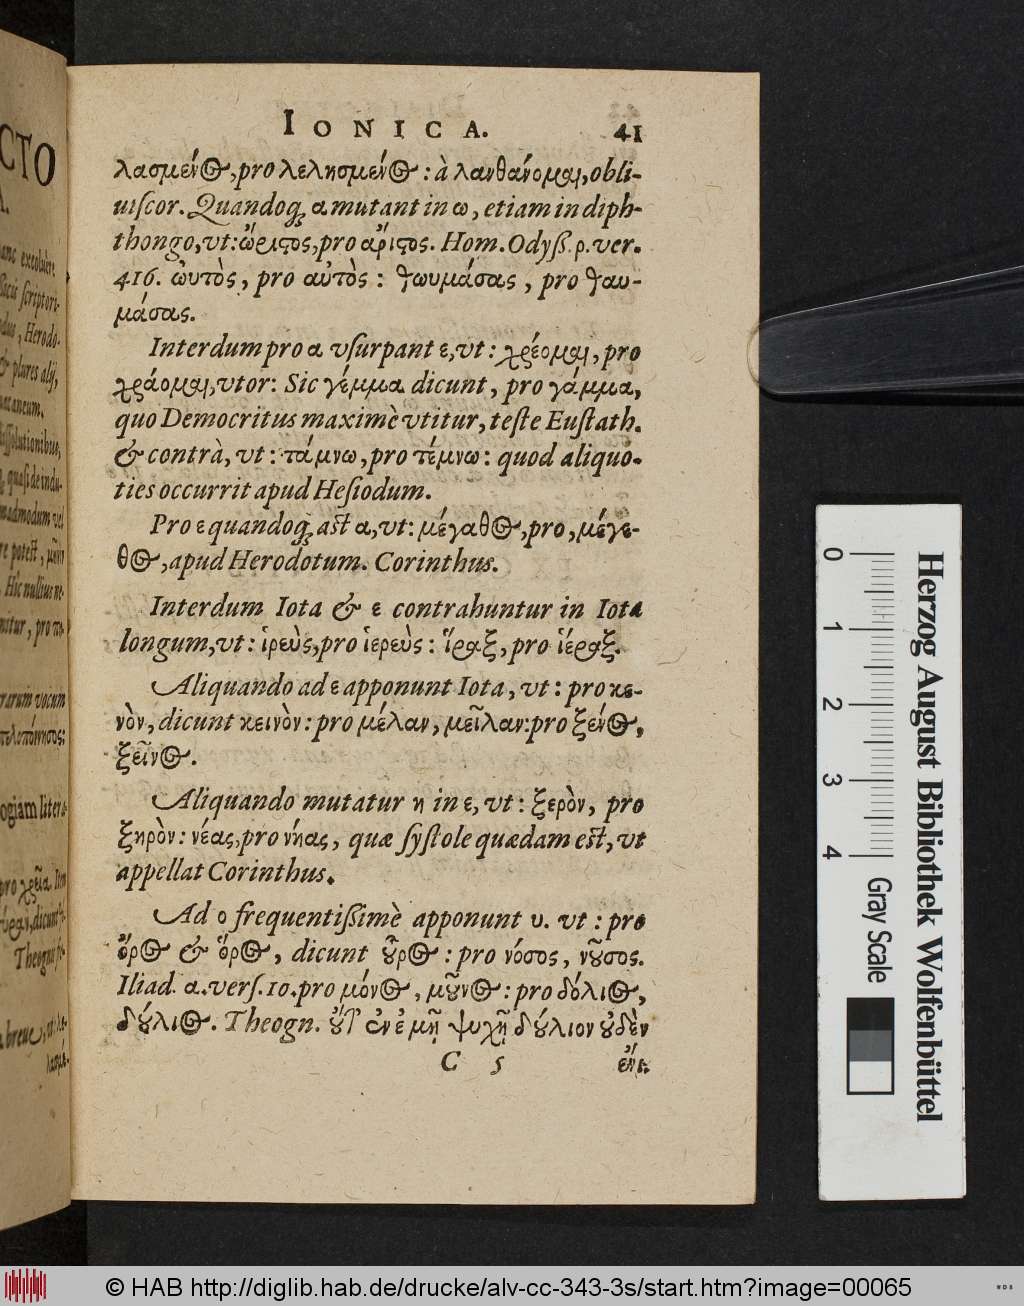 IONICA. 41
λασμένος, pro λελησμένος: à λανθάνομαι, obli-
uiscor. Quandoq; α mutant in ω, etiam in diph-
thongo, vt: ὤριστος, pro ἄριστος. Hom. Odyß. ρ. ver.
416. ὠυτὸς, pro αὐτὸς: θωυμάσας, pro θαυ-
μάσας.
Interdum pro α vsurpant ε, vt: χρέομαι, pro
χράομαι, vtor: Sic γέμμα dicunt, pro γάμμα,
quo Democritus maximè vtitur, teste Eustath.
& contrà, vt: τάμνω, pro τέμνω: quod aliquo-
ties occurrit apud Hesiodum.
Pro ε quandoq; ast α, vt: μέγαθος, pro, μέγε-
θος, apud Herodotum. Corinthus.
Interdum Iota & ε contrahuntur in Iota
longum, vt: ἱρεὺς, pro ἱερεὺς: ἵραξ, pro ἱέραξ.
Aliquando ad ε apponunt Iota, vt: pro κε-
νὸν, dicunt κεινὸν: pro μέλαν, μεῖλαν: pro ξένος,
ξεῖνος.
Aliquando mutatur η in ε, vt: ξερὸν, pro
ξηρὸν: νέας, pro νήας, quæ systole quædam est, vt
appellat Corinthus.
Ad ο frequentißimè apponunt υ. vt: pro
ὄρος & ὅρος, dicunt οὖρος: pro νόσος, νοῦσος.
Iliad. α. vers. 10. pro μόνος, μοῦνος: pro δόλιος,
δούλιος. Theogn. οὔτ' ἐν ἐμῇ ψυχῇ δούλιον οὐδὲν
C 5 ἔνι.
CTO
Herodo-
& plures alij,
Hîc nullius ne-
rarum vocum
ogiam litera-
pro χρεία. Item
Theogn
a breue, vt: λε-
λασμέ-
0 1 2 3 4
Gray Scale
Herzog August Bibliothek Wolfenbüttel
© HAB http://diglib.hab.de/drucke/alv-cc-343-3s/start.htm?image=00065